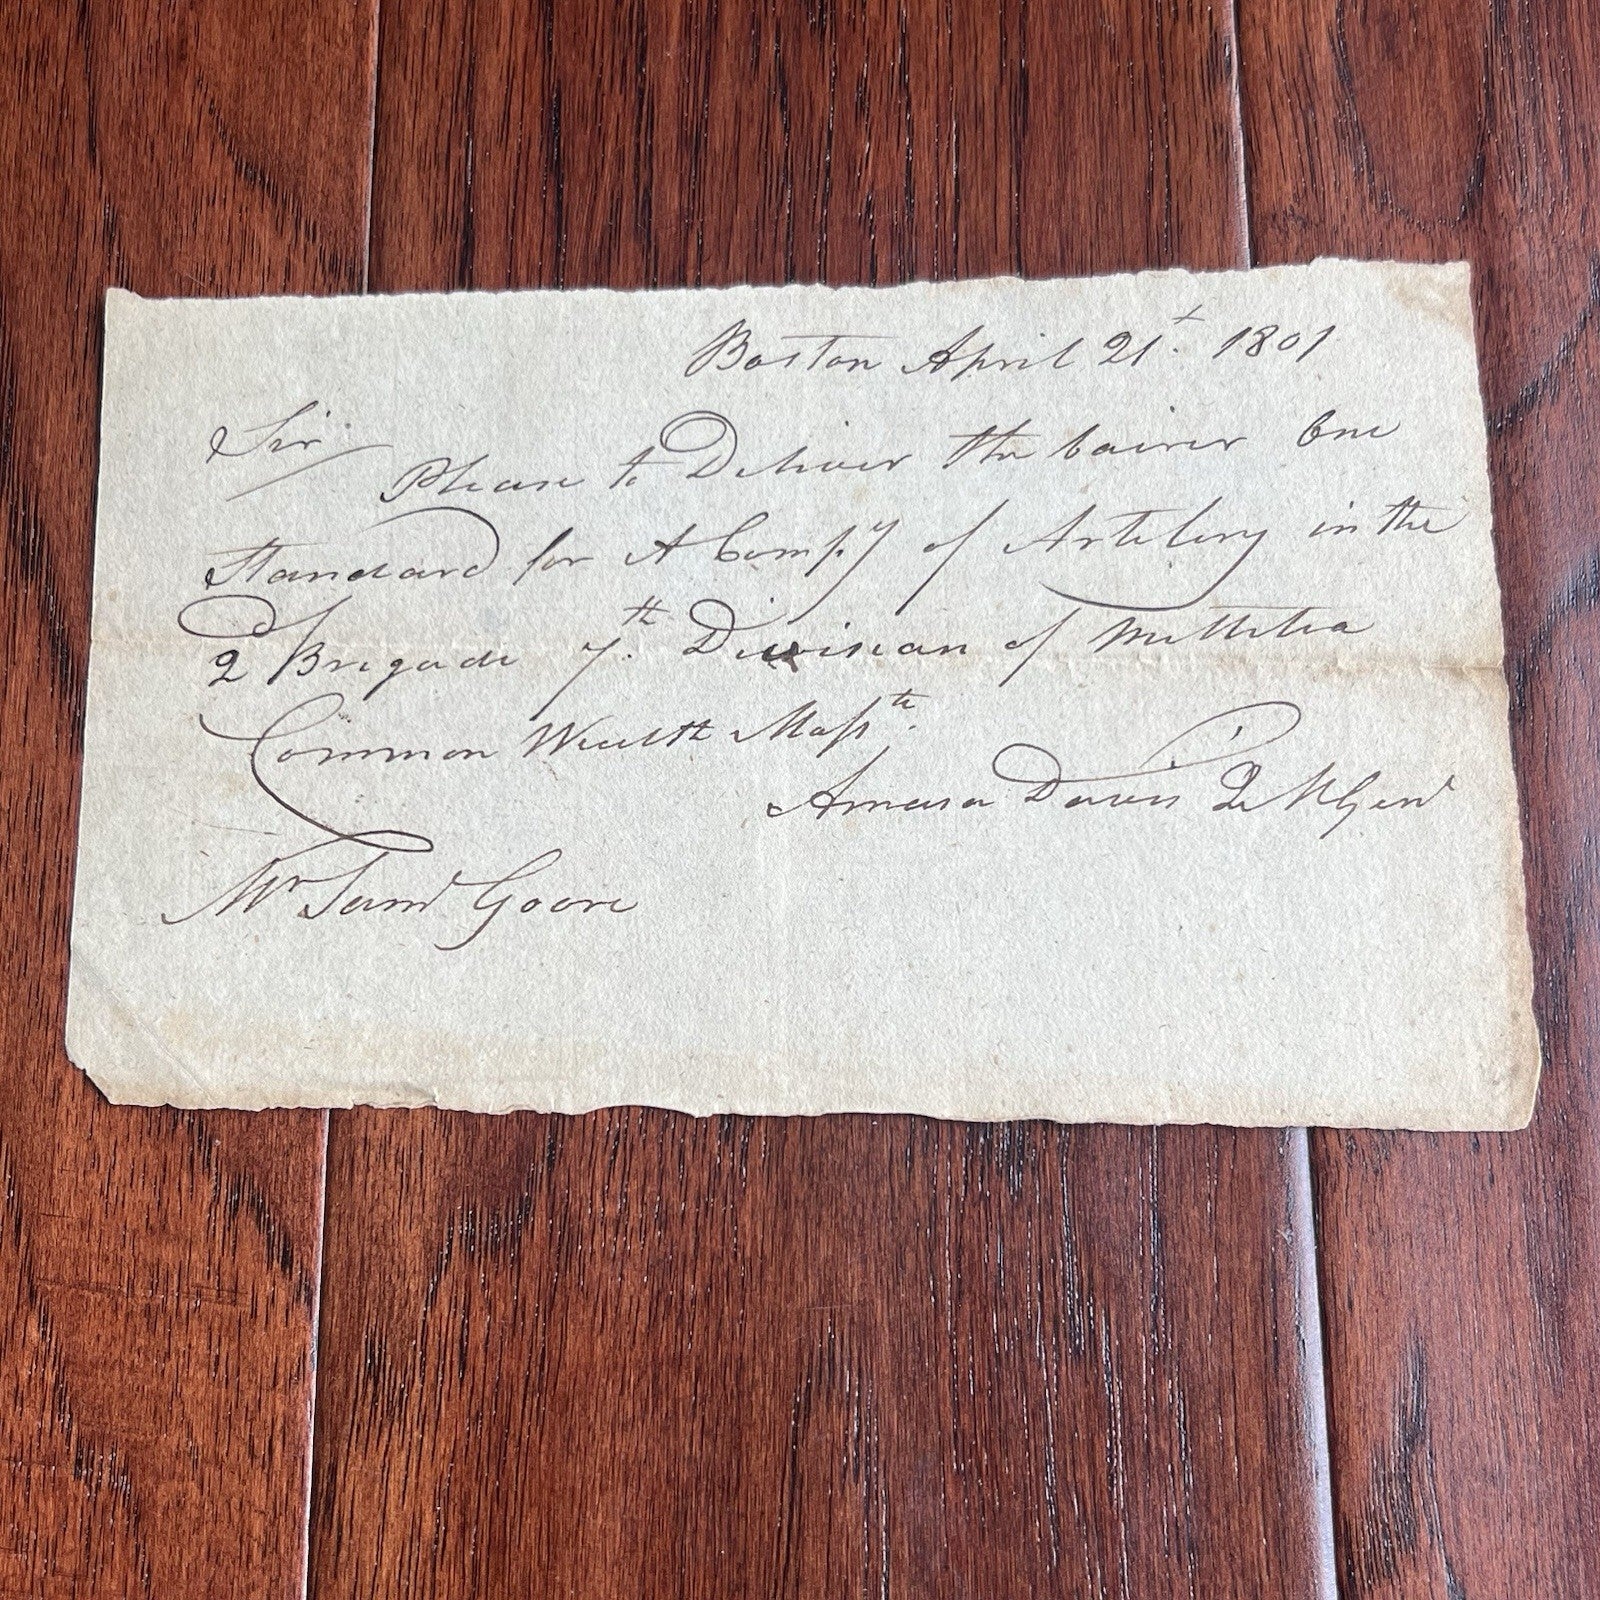 Boston April 21st. 1801
Sir
Please to Deliver the bairer One
Standard for A Compy of Artilery in the
2 Brigade 7th Division of Millitia
Common Wealth Massts.
Amasa Davis Qr M Genl
Mr Saml Goore